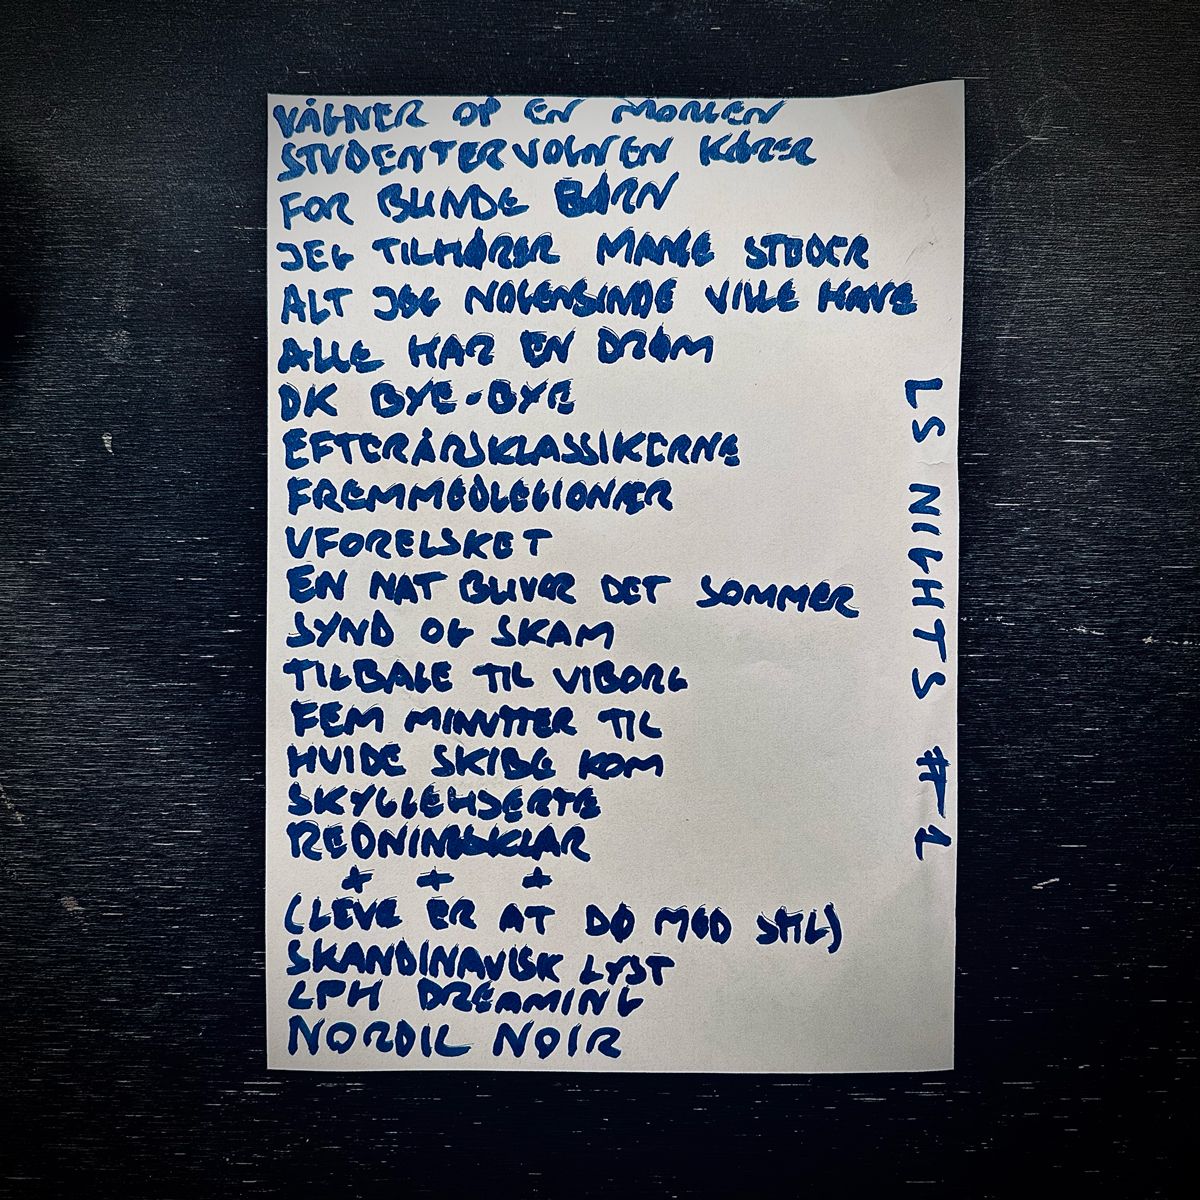 VÅGNER OP EN MORGEN
STUDENTERVOGNEN KØRER
FOR BLINDE BØRN
JEG TILHØRER MANGE STEDER
ALT JEG NOGENSINDE VILLE HAVE
ALLE HAR EN DRØM
DK BYE-BYE
EFTERÅRSKLASSIKERNE
FREMMEDLEGIONÆR
UFORELSKET
EN NAT BLIVER DET SOMMER
SYND OG SKAM
TILBAGE TIL VIBORG
FEM MINUTTER TIL
HVIDE SKIBE KOM
SKYGGEHJERTE
REDNINGSKLAR
+ + +
(LEVE ER AT DØ MED STIL)
SKANDINAVISK LYST
CPH DREAMING
NORDIC NOIR
LS NIGHTS #1